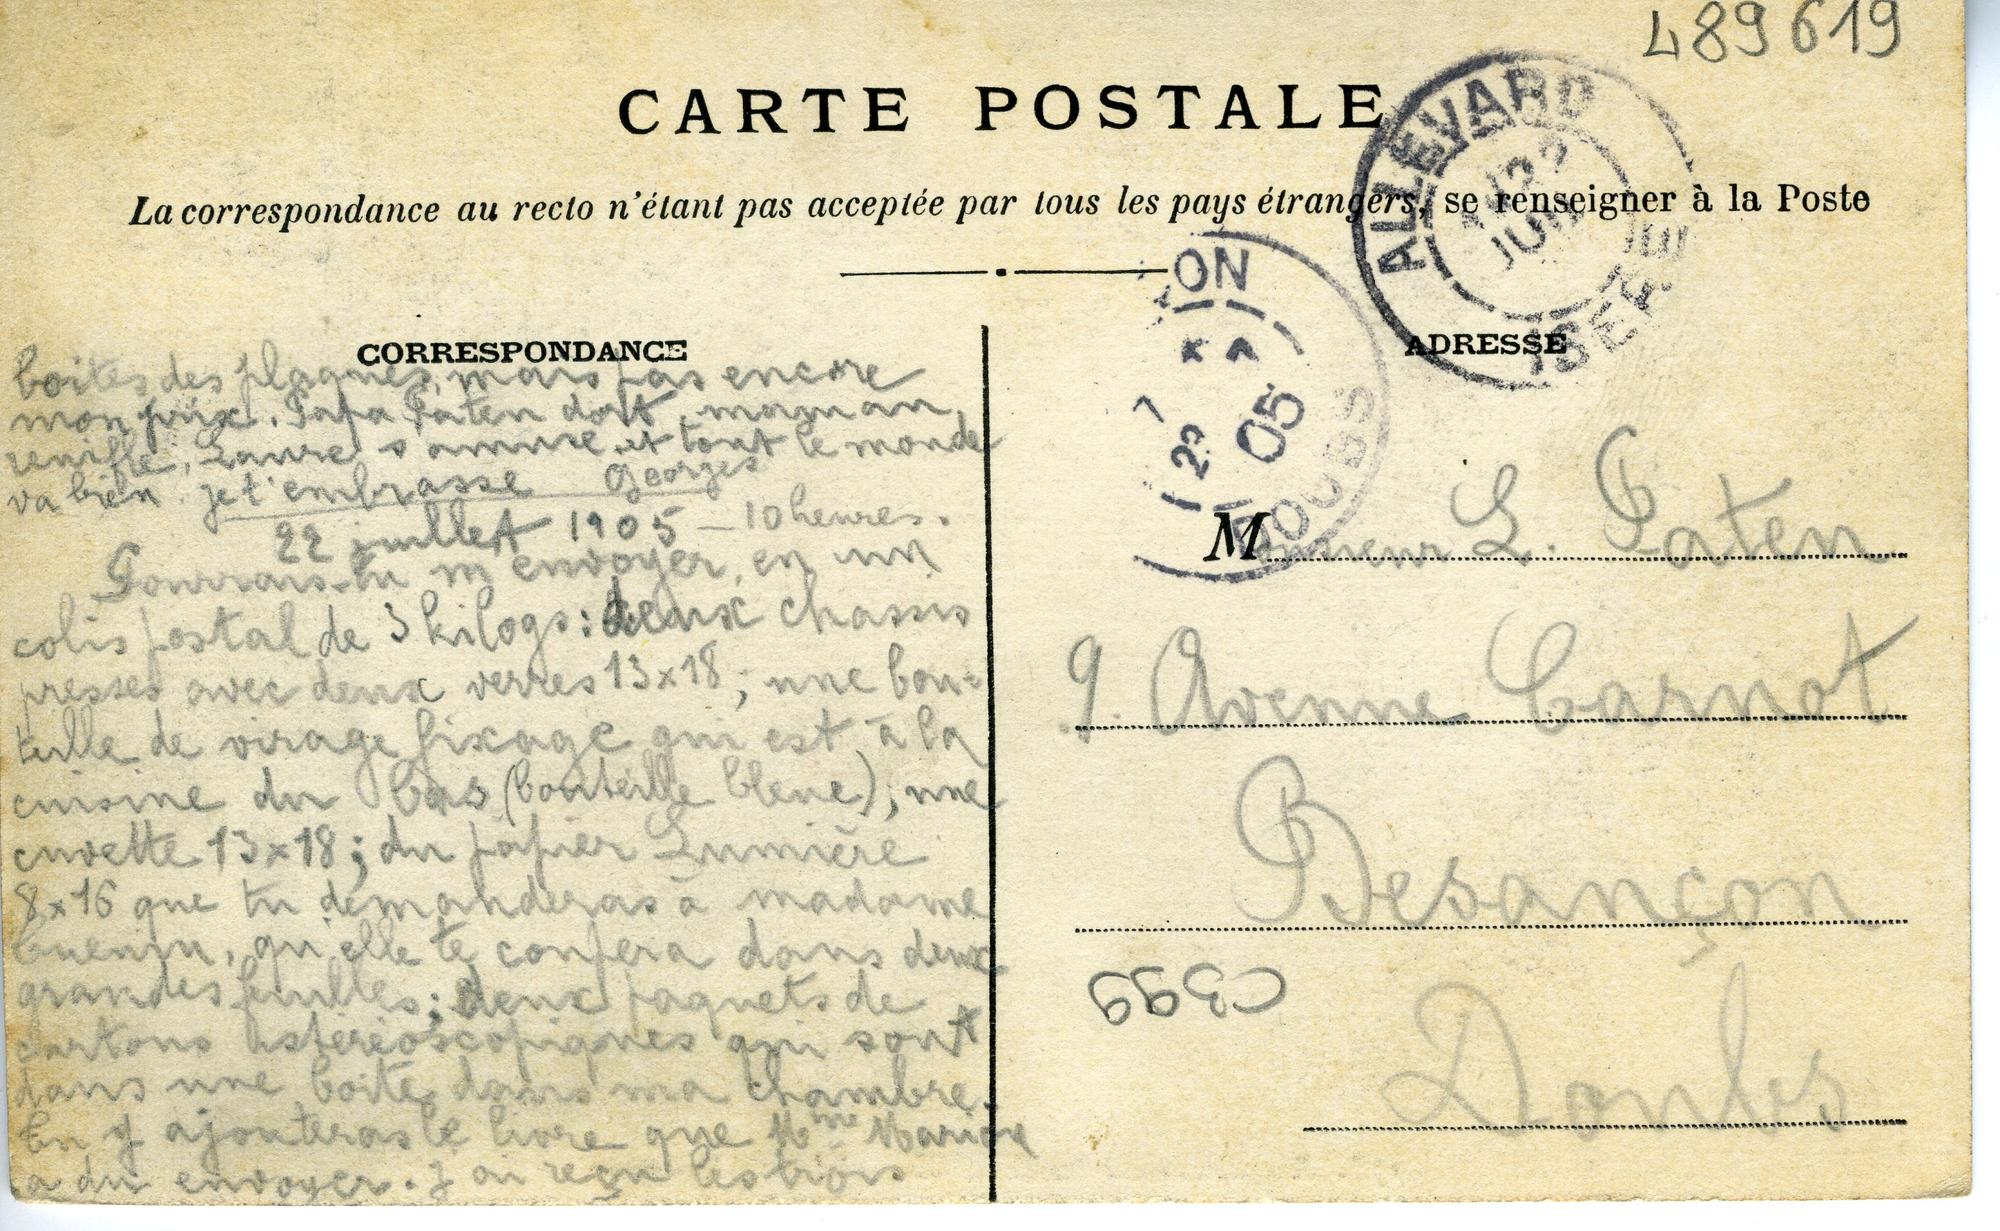 489619
CARTE POSTALE
La correspondance au recto n'étant pas acceptée par tous les pays étrangers, se renseigner à la Poste
ALLEVARD
22
JUIL
ISERE
ON
23 7
05
DOUBS
CORRESPONDANCE
boites des plaques, mais pas encore
mon prix. Papa Paten dort, maman,
renifle, Laure s'amuse et tout le monde
va bien. je t'embrasse Georges
22 juillet 1905 - 10 heures.
Pourrais-tu m'envoyer, en un
colis postal de 3 kilogs: deux chassis
presses avec deux verres 13x18; une bou-
teille de virage fixage qui est à la
cuisine du bas (bouteille bleue), une
cuvette 13x18; du papier Lumière
8x16 que tu demanderas à madame
Guenin, qu'elle te coupera dans deux
grandes feuilles; deux paquets de
cartons stéréoscopiques qui sont
dans une boite dans ma chambre.
tu y ajouteras le livre que Mme
a du envoyer. j'ai reçu les trois
ADRESSE
Monsieur L. Paten
9. Avenue Carnot
Besançon
C399
Doubs